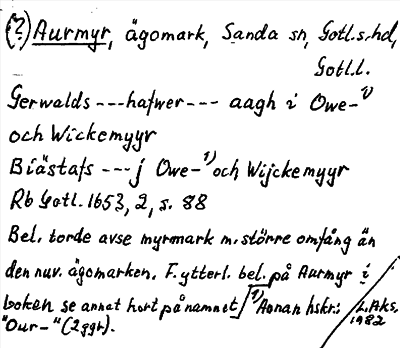 (?) Aurmyr, ägomark, Sanda sn, Gotl.s.hd,
Gotl.l.
Gerwalds ---hafwer--- aagh i Owe-¹⁾
och Wickemyyr
Biästafs ---j Owe-¹⁾ och Wijckemyyr
Rb Gotl. 1653, 2, s. 88
Bel. torde avse myrmark m. större omfång än
den nuv. ägomarken. F. ytterl. bel. på Aurmyr i
boken se annat kort på namnet/ ¹⁾Annan hskr:
"Our-" (2ggr). L.Aks. 1982